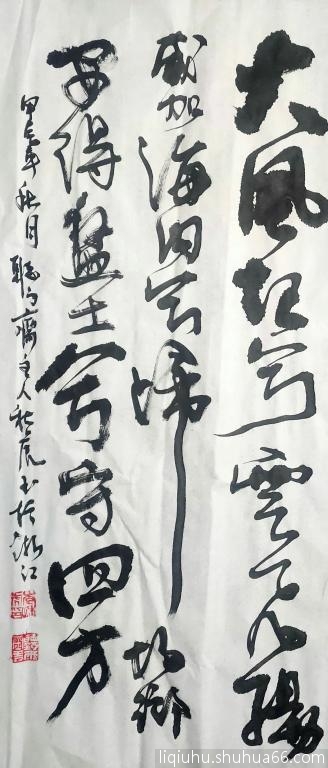 大風起兮雲飞揚
威加海内兮歸故鄉
安得猛士兮守四方
甲辰年秋月齋主人秋虎书於浙江
liqiuhu.shuhua66.com